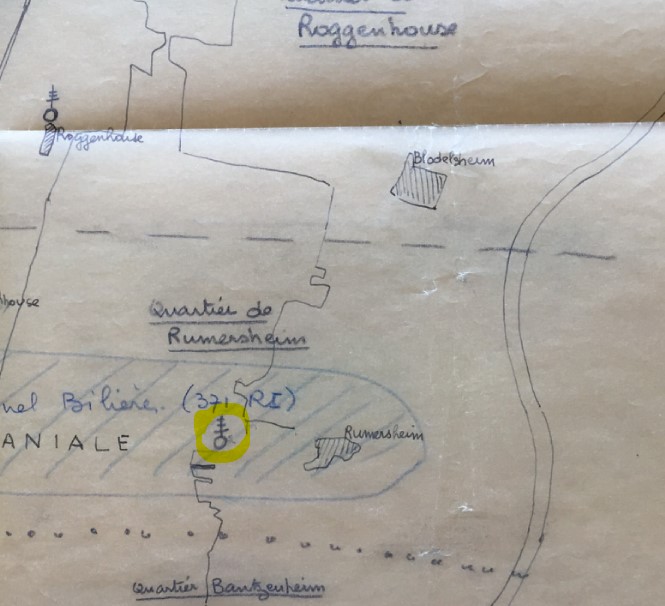 Roggenhouse
Roggenhouse
Blodelsheim
house
Quartier de
Rumersheim
nel Bilière. (371 RI)
ANIALE
Rumersheim
Quartier Bantzenheim